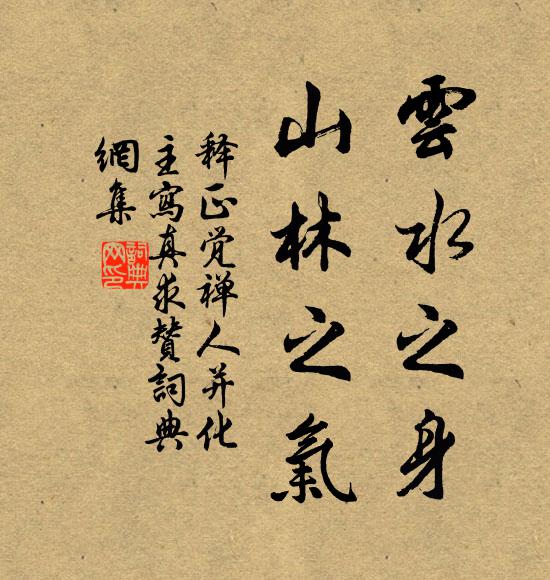 雲水之身
山林之氣
释正觉禅人并化
主寫真求贊詞典
網集
詞典
网印